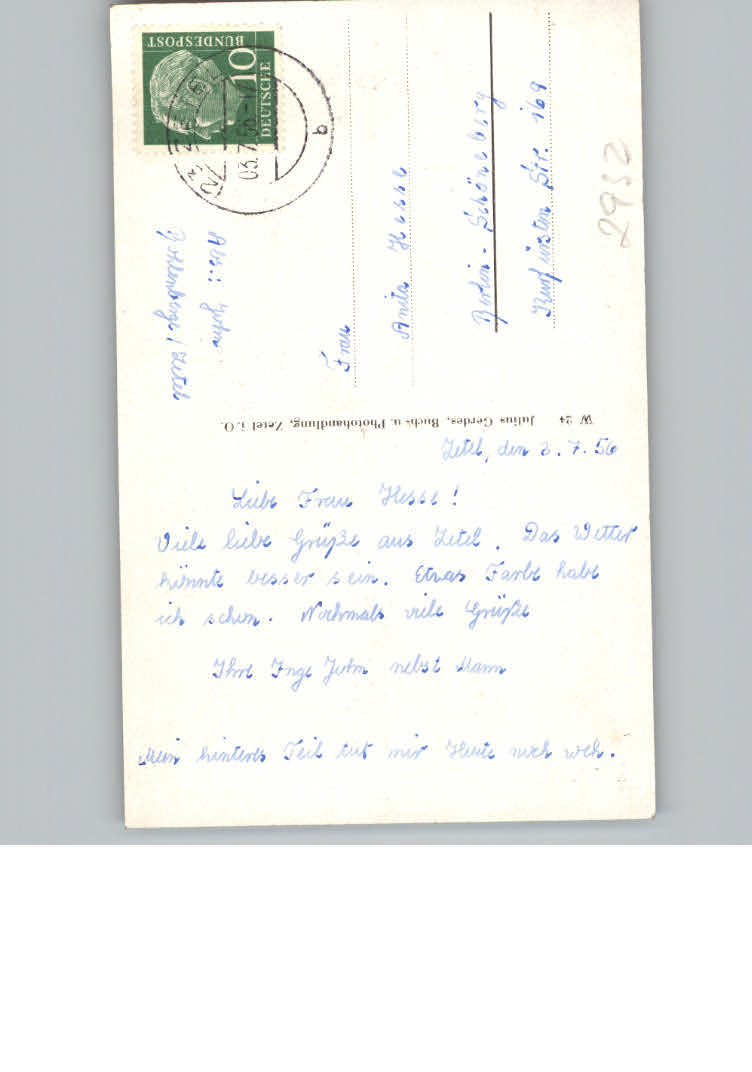 DEUTSCHE
BUNDESPOST
10
03.7.56-17
b
Abs.: John
Bohlenberge / Zetel
Frau
Anita Hesse
Berlin - Schöneberg
Kurfürsten Str. 169
2932
W 24 Julius Gerdes, Buch- u. Photohandlung, Zetel i. O.
Zetel, den 2.7.56
Liebe Frau Hesse!
Viele liebe Grüße aus Zetel. Das Wetter
könnte besser sein. Etwas Farbe habe
ich schon. Nochmals viele Grüße
Ihre Inge John nebst Mann
Mein hinteres Teil tut mir Heute noch weh.